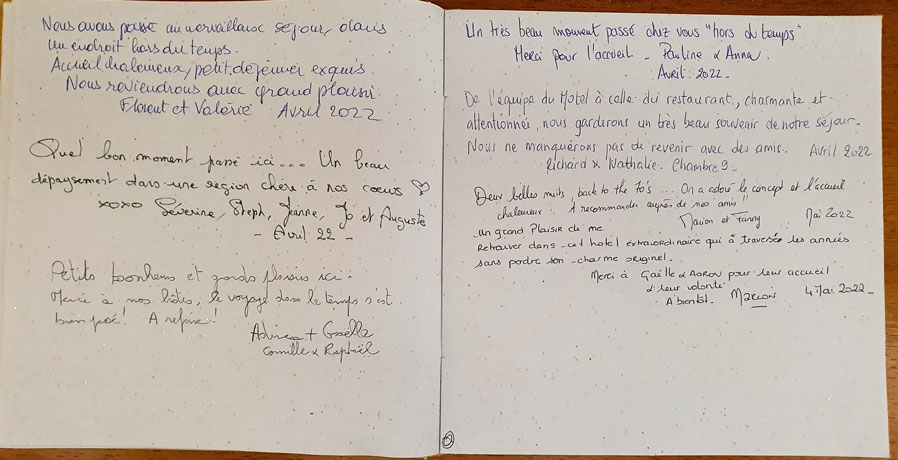 Nous avons passé un merveilleux séjour, dans
un endroit hors du temps.
Accueil chaleureux, petit déjeuner exquis.
Nous reviendrons avec grand plaisir.
Florent et Valérie Avril 2022
Quel bon moment passé ici... Un beau
dépaysement dans une région chère à nos coeurs ♡
xoxo Séverine, Steph, Jeanne, Jo et Auguste
- Avril 22 -
Petits bonheurs et grands plaisirs ici.
Merci à nos hôtes, le voyage dans le temps s'est
bien passé! A refaire!
+ Gaëlle
Camille & Raphaël
Un très beau moment passé chez vous "hors du temps"
Merci pour l'accueil - Pauline & Anna
Avril 2022.
De l'équipe du Motel à celle du restaurant, charmante et
attentionnée, nous garderons un très beau souvenir de notre séjour.
Nous ne manquerons pas de revenir avec des amis. Avril 2022
Richard & Nathalie. Chambre 9.
Deux belles nuits, back to the 70's... On a adoré le concept et l'accueil
chaleureux. A recommander auprès de nos amis!!
Marion et Fanny Mai 2022
un grand Plaisir de me
Retrouver dans cet hotel extraordinaire qui à traversée les années
sans perdre son charme originel.
Merci à Gaëlle & Aaron pour leur accueil
& leur volonté
A bientôt. Marion 4 Mai 2022